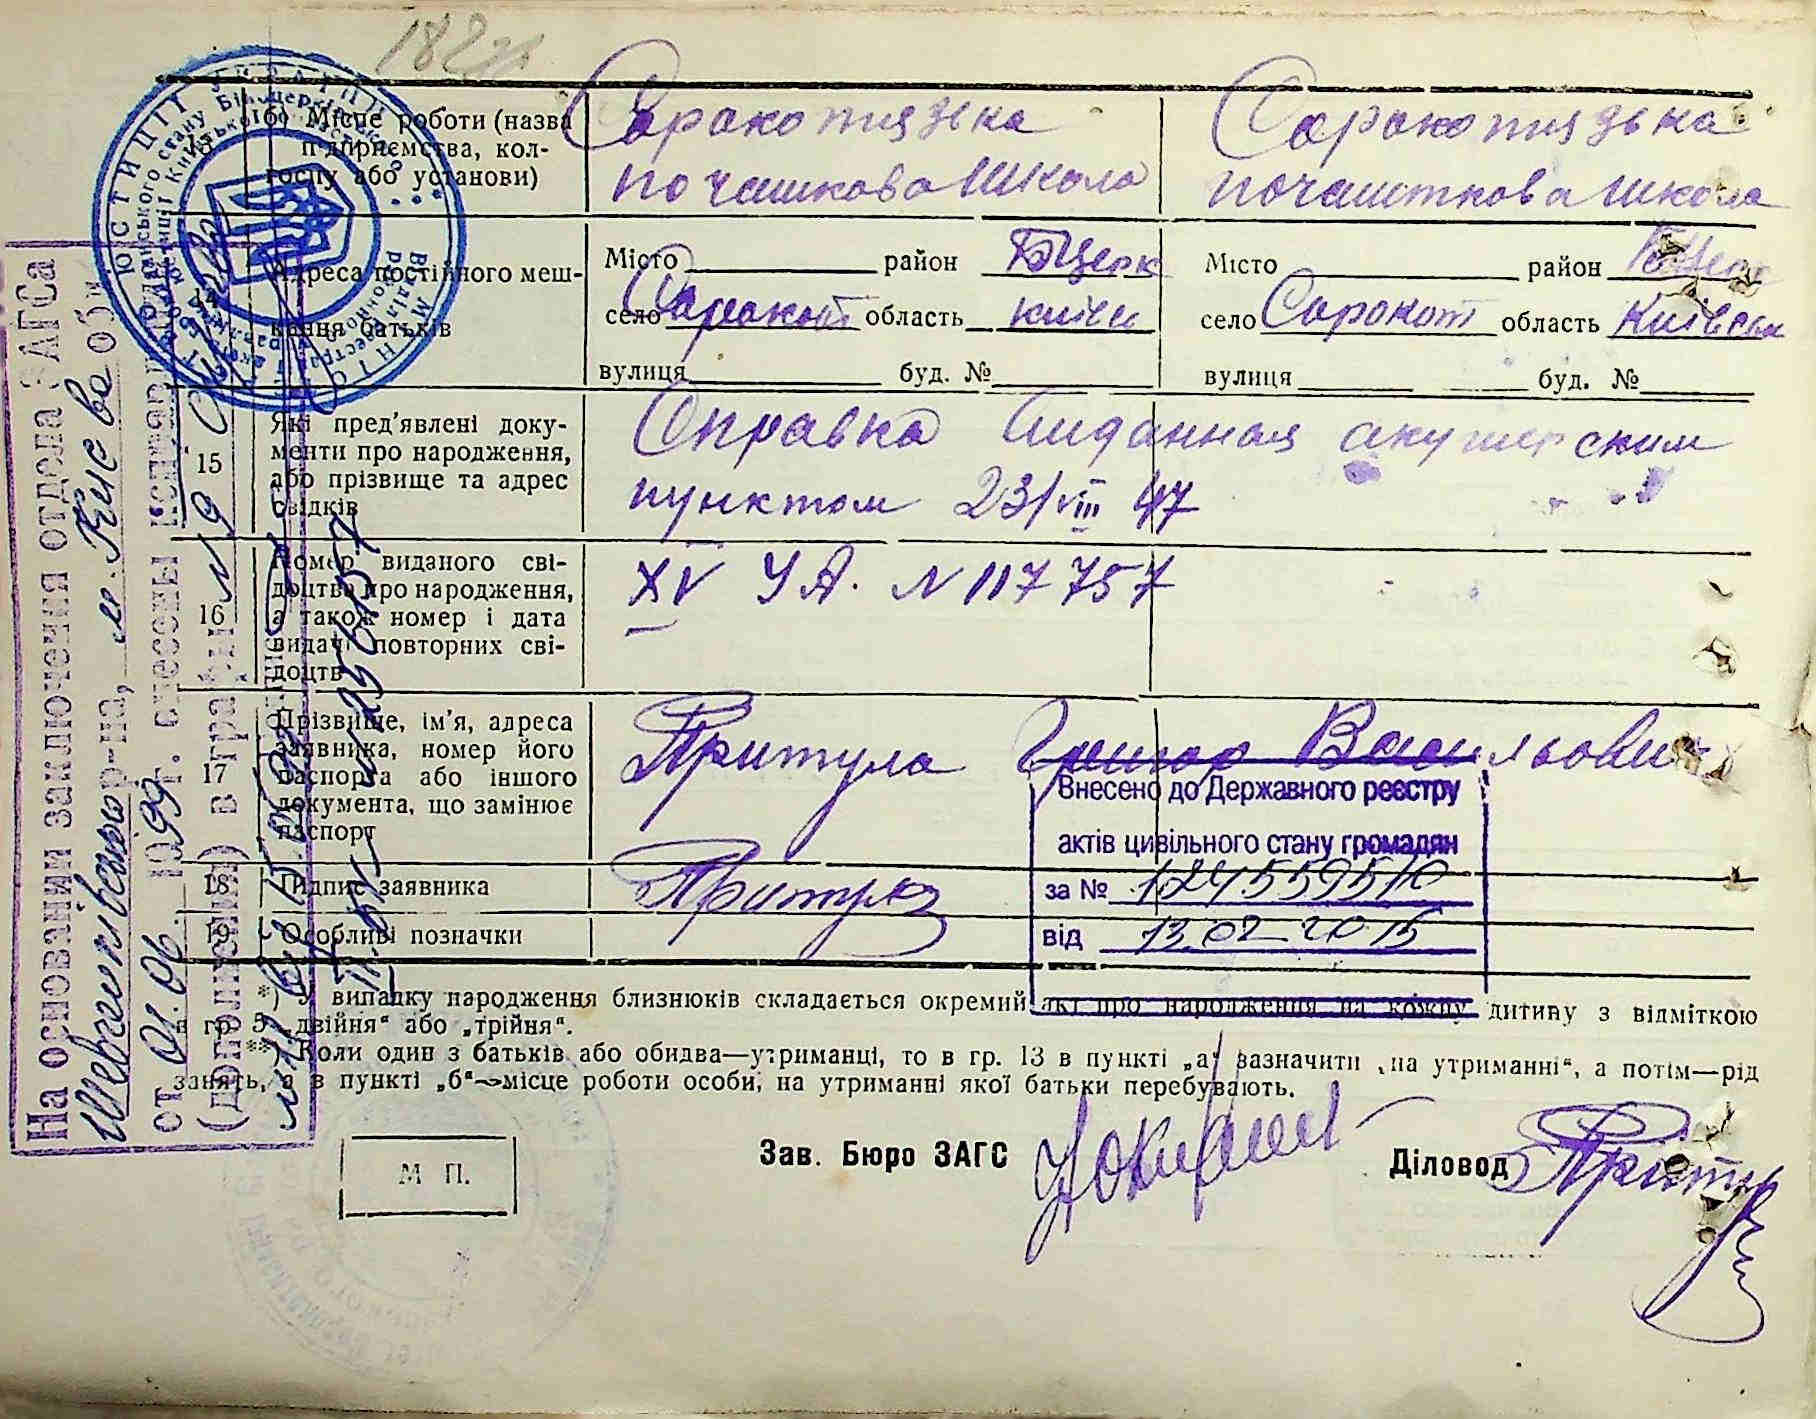 182
б) Місце роботи (назва Сорокотязька Сорокотязька
13 підприємства, кол-
госпу або установи) початкова школа початкова школа
Місто район Б Церк Місто район Б Церк
14 Адреса постійного меш-
кання батьків село Сорокот область Київс село Сорокот область Київськ
вулиця буд. № вулиця буд. №
Які пред'явлені доку- Справка виданная акушерским
15 менти про народження,
або прізвище та адрес пунктом 23/VIII 47
свідків
Номер виданого сві- XV УА. N 117757
доцтва про народження,
16 а також номер і дата
видачі повторних сві-
доцтв
Прізвище, ім'я, адреса Притула Григор Васильович
заявника, номер його
17 паспорта або іншого
документа, що замінює
паспорт
Внесено до Державного реєстру
актів цивільного стану громадян
за № 124559510
від 13.02.2015
18 Підпис заявника Притула
19 Особливі позначки
*) У випадку народження близнюків складається окремий акт про народження на кожну дитину з відміткою
в гр. 5 „двійня“ або „трійня“.
**) Коли один з батьків або обидва—утриманці, то в гр. 13 в пункті „а“ зазначити „на утриманні“, а потім—рід
занять, а в пункті „б“—місце роботи особи, на утриманні якої батьки перебувають.
М П.
Зав. Бюро ЗАГС
Діловод
На основании заключения отдела ЗАГСа
Шевченковского р-на, м. Киева обл
от 01.06. 1999 г. внесены исправления
(дополнения) в графы